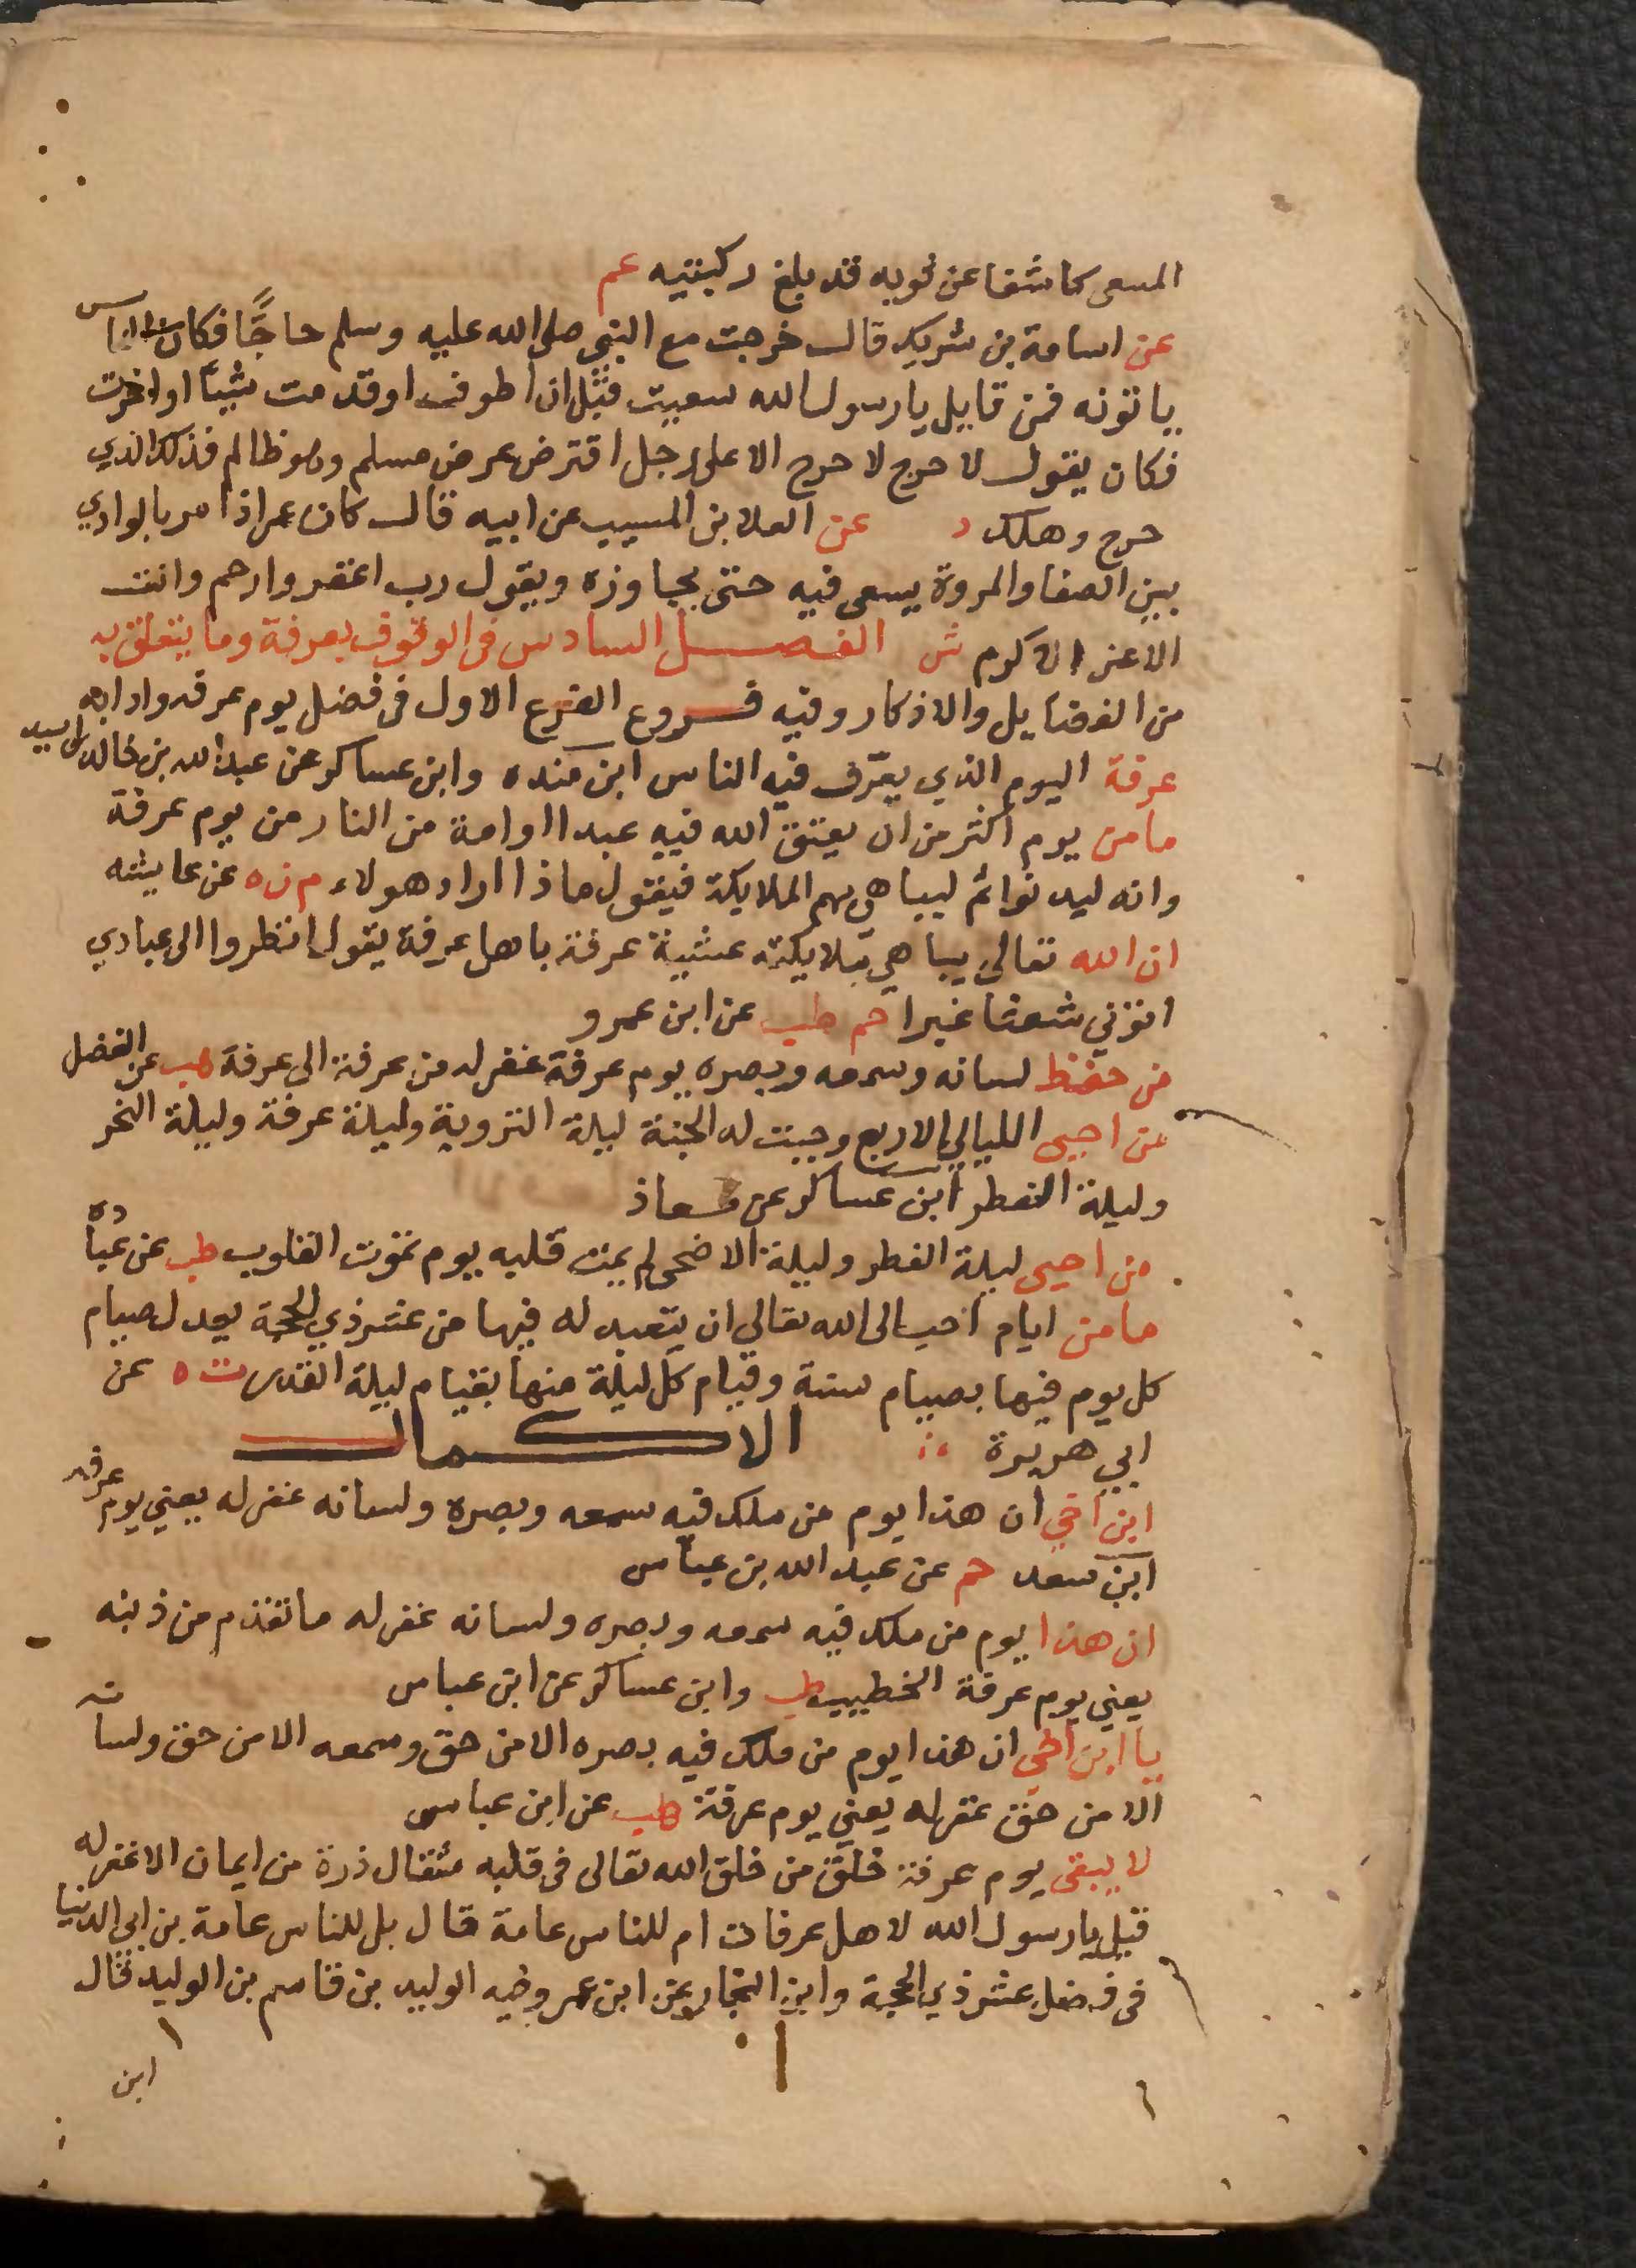 المسعى كاشفا عن ثوبه قد بلغ ركبتيه عم
عن اسامة بن شريك قال خرجت مع النبي صلى الله عليه وسلم حاجًّا فكان الناس
ياتونه فمن قايل يارسول الله سعيت قبل ان اطوف او قدمت شيئًا او اخرت
فكان يقول لا حرج لا حرج الا على رجل اقترض عرض مسلم وهو ظالم فذلك الذي
حرج وهلك د عن العلا بن المسيب عن ابيه قال كان عمر اذا مر بالوادي
بين الصفا والمروة يسعى فيه حتى يجاوزه ويقول رب اغفر وارحم وانت
الاعز الاكرم ش الفصل السادس في الوقوف بعرفة وما يتعلق به
من الفضايل والاذكار وفيه فروع الفرع الاول في فضل يوم عرفه وادابه
عرفة اليوم الذي يعرف فيه الناس ابن منده وابن عساكر عن عبد الله بن خالد بن اسيد
ما من يوم اكثر من ان يعتق الله فيه عبدا او امة من النار من يوم عرفة
وانه ليدنوا ثم ليباهي بهم الملايكة فيقول ماذا اراد هولاء م ن ه عن عايشه
ان الله تعالى يباهي ملايكته عشية عرفة باهل عرفة يقول انظروا الى عبادي
اتوني شعثا غبرا حم طب عن ابن عمرو
من حفظ لسانه وسمعه وبصره يوم عرفة غفر له من عرفة الى عرفة هب عن الفضل
من احيى الليالي الاربع وجبت له الجنة ليلة التروية وليلة عرفة وليلة النحر
وليلة الفطر ابن عساكر عن معاذ
من احيى ليلة الفطر وليلة الاضحى لم يمت قلبه يوم تموت القلوب طب عن عبادة
ما من ايام احب الى الله تعالى ان يتعبد له فيها من عشر ذي الحجة يعدل صيام
كل يوم فيها بصيام سنة وقيام كل ليلة منها بقيام ليلة القدر ت ه عن
ابي هريرة الاكمال
ابن اخي ان هذا يوم من ملك فيه سمعه وبصره ولسانه غفر له يعني يوم عرفه
ابن سعد حم عن عبد الله بن عباس
ان هذا يوم من ملك فيه سمعه وبصره ولسانه غفر له ما تقدم من ذنبه
يعني يوم عرفة الخطيب طب وابن عساكر عن ابن عباس
يا ابن اخي ان هذا يوم من ملك فيه بصره الا من حق وسمعه الا من حق ولسانه
الا من حق غفر له يعني يوم عرفة هب عن ابن عباس
لا يبقى يوم عرفة خلق من خلق الله تعالى في قلبه مثقال ذرة من ايمان الا غفر له
قيل يارسول الله لاهل عرفات ام للناس عامة قال بل للناس عامة بن ابي الدنيا
في فضل عشر ذي الحجة وابن النجار عن ابن عمر وفيه الوليد بن قاسم بن الوليد قال
ابن